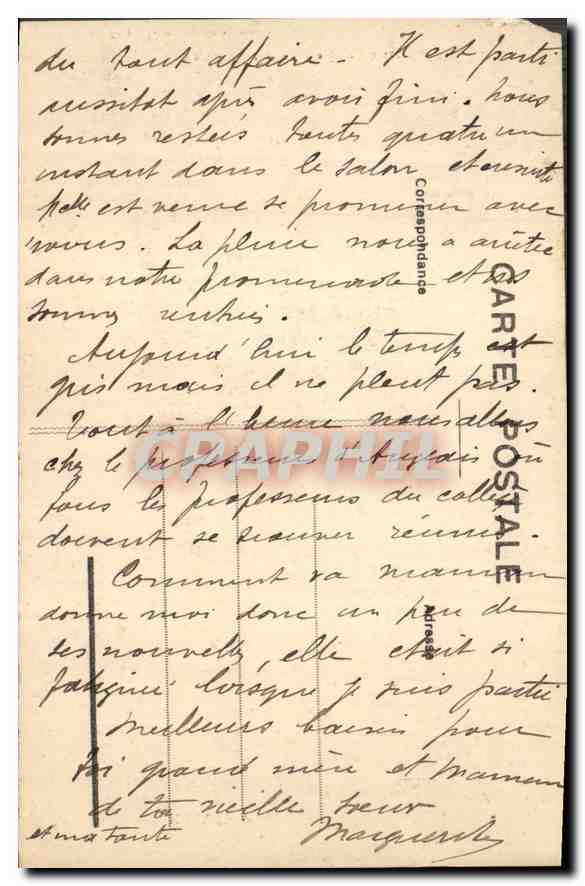 du tout affaire - Il est parti
aussitot après avoir fini. Nous
sommes restées toutes quatre un
instant dans le salon et ensuite
Melle est venue se promener avec
nous. La pluie nous a arrêté
dans notre promenade et ns
sommes rentrées.
Aujourd'hui le temps est
gris mais il ne pleut pas.
Tout à l'heure nous allons
chez le professeur d'Anglais où
tous les professeurs du collège
doivent se trouver réunis.
Comment va maman
donne moi donc un peu de
ses nouvelles, elle était si
fatiguée lorsque je suis partie
Meilleurs baisers pour
toi grand mère et Maman
de ta vieille soeur
et ma tante
Marguerite
Correspondance
CARTE POSTALE
Adresse
CPAPHIL